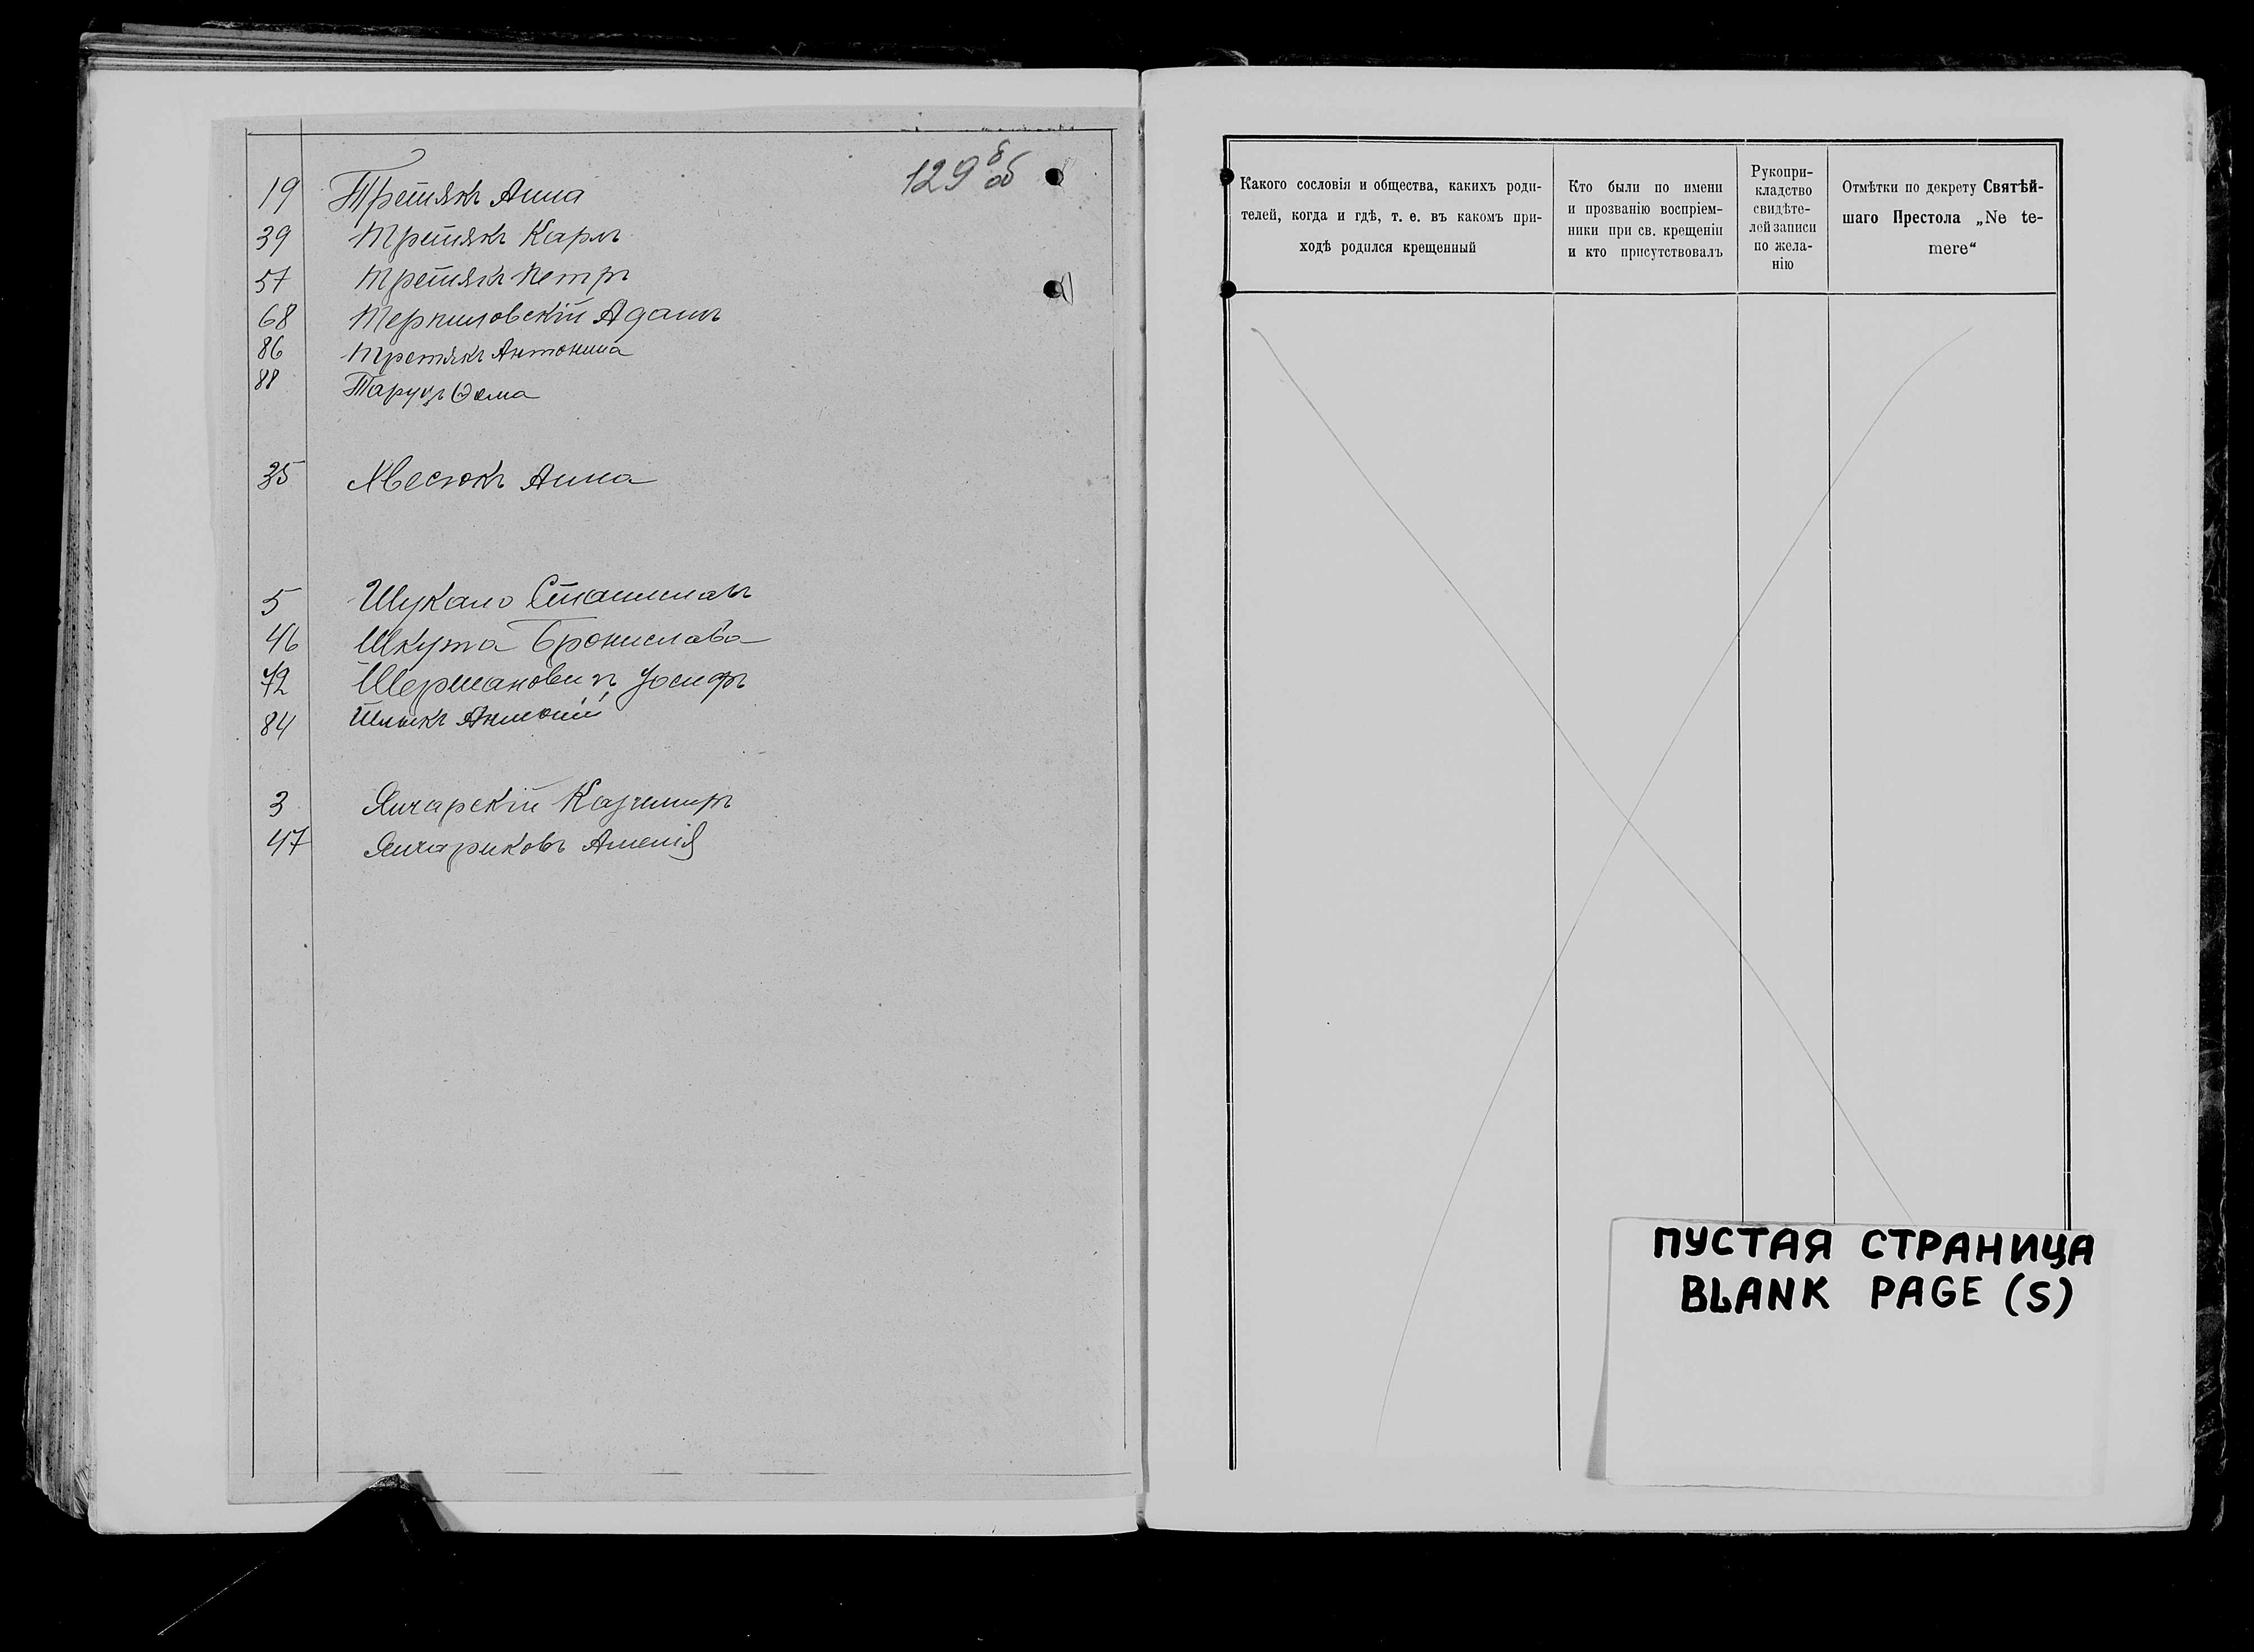 129 в об
19 Третякъ Анна
39 Третякъ Карлъ
57 Третякъ Петръ
68 Терпиловскій Адамъ
86 Третякъ Антонина
88 Таруц Ѳома
35 Хвесюкъ Анна
5 Шукало Станиславъ
46 Шкута Бронислава
72 Шермановичъ Іосифъ
84 Шлыкъ Антоній
3 Янчарскій Казимиръ
47 Янчариковъ Амелія
Какого сословія и общества, какихъ роди-
телей, когда и гдѣ, т. е. въ какомъ при-
ходѣ родился крещенный
Кто были по имени
и прозванію воспріем-
ники при св. крещеніи
и кто присутствовалъ
Рукопри-
кладство
свидѣте-
лей записи
по жела-
нію
Отмѣтки по декрету Святѣй-
шаго Престола „Ne te-
mere“
ПУСТАЯ СТРАНИЦА
BLANK PAGE (S)